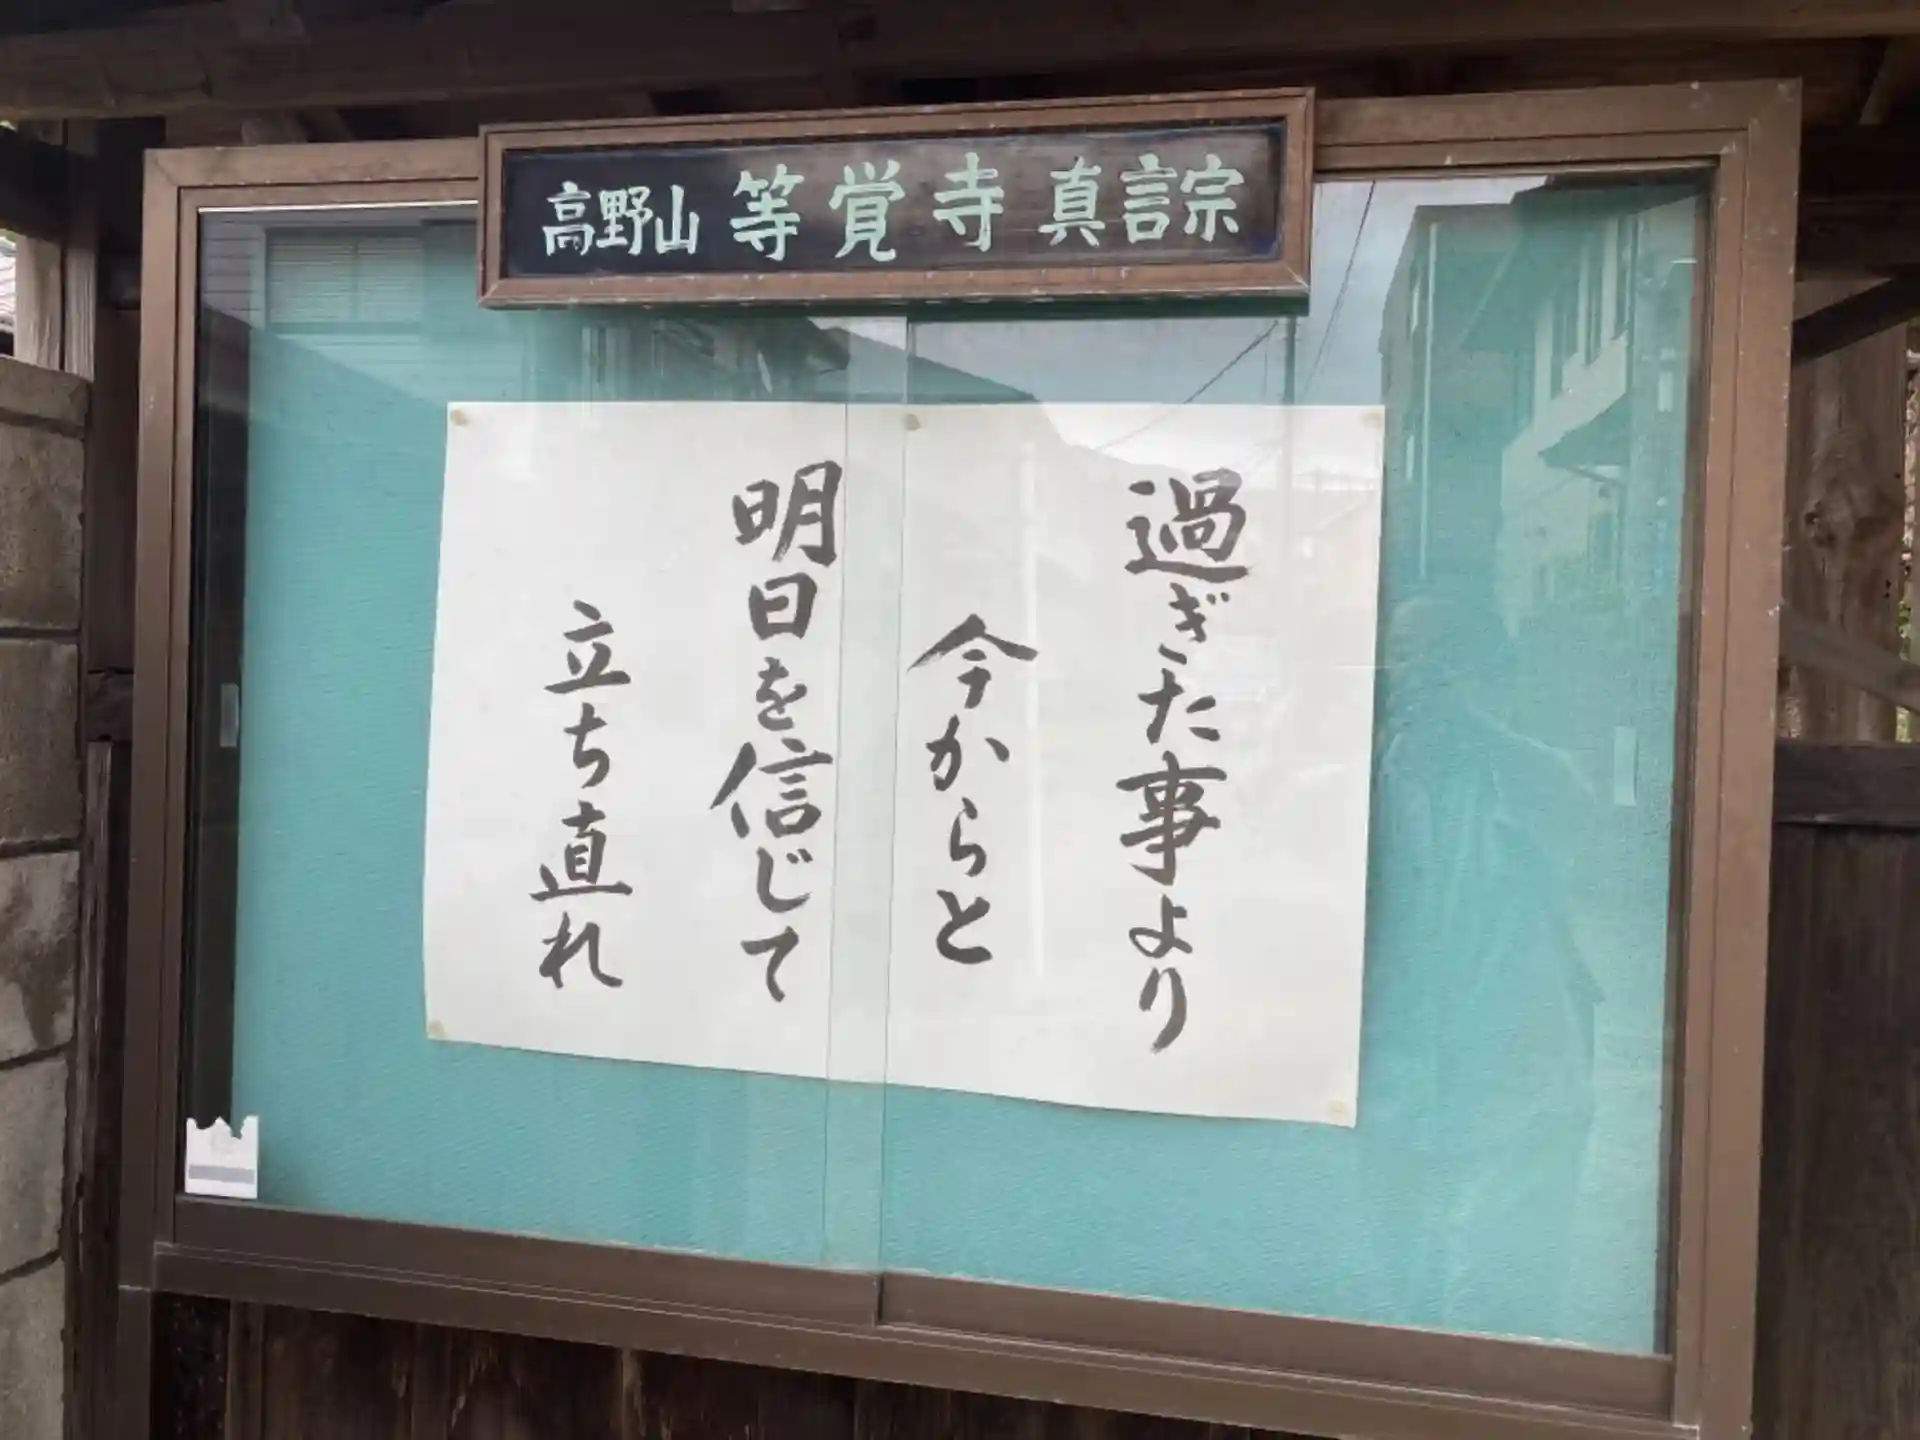 高野山 等覚寺 真言宗
過ぎた事より
今からと
明日を信じて
立ち直れ